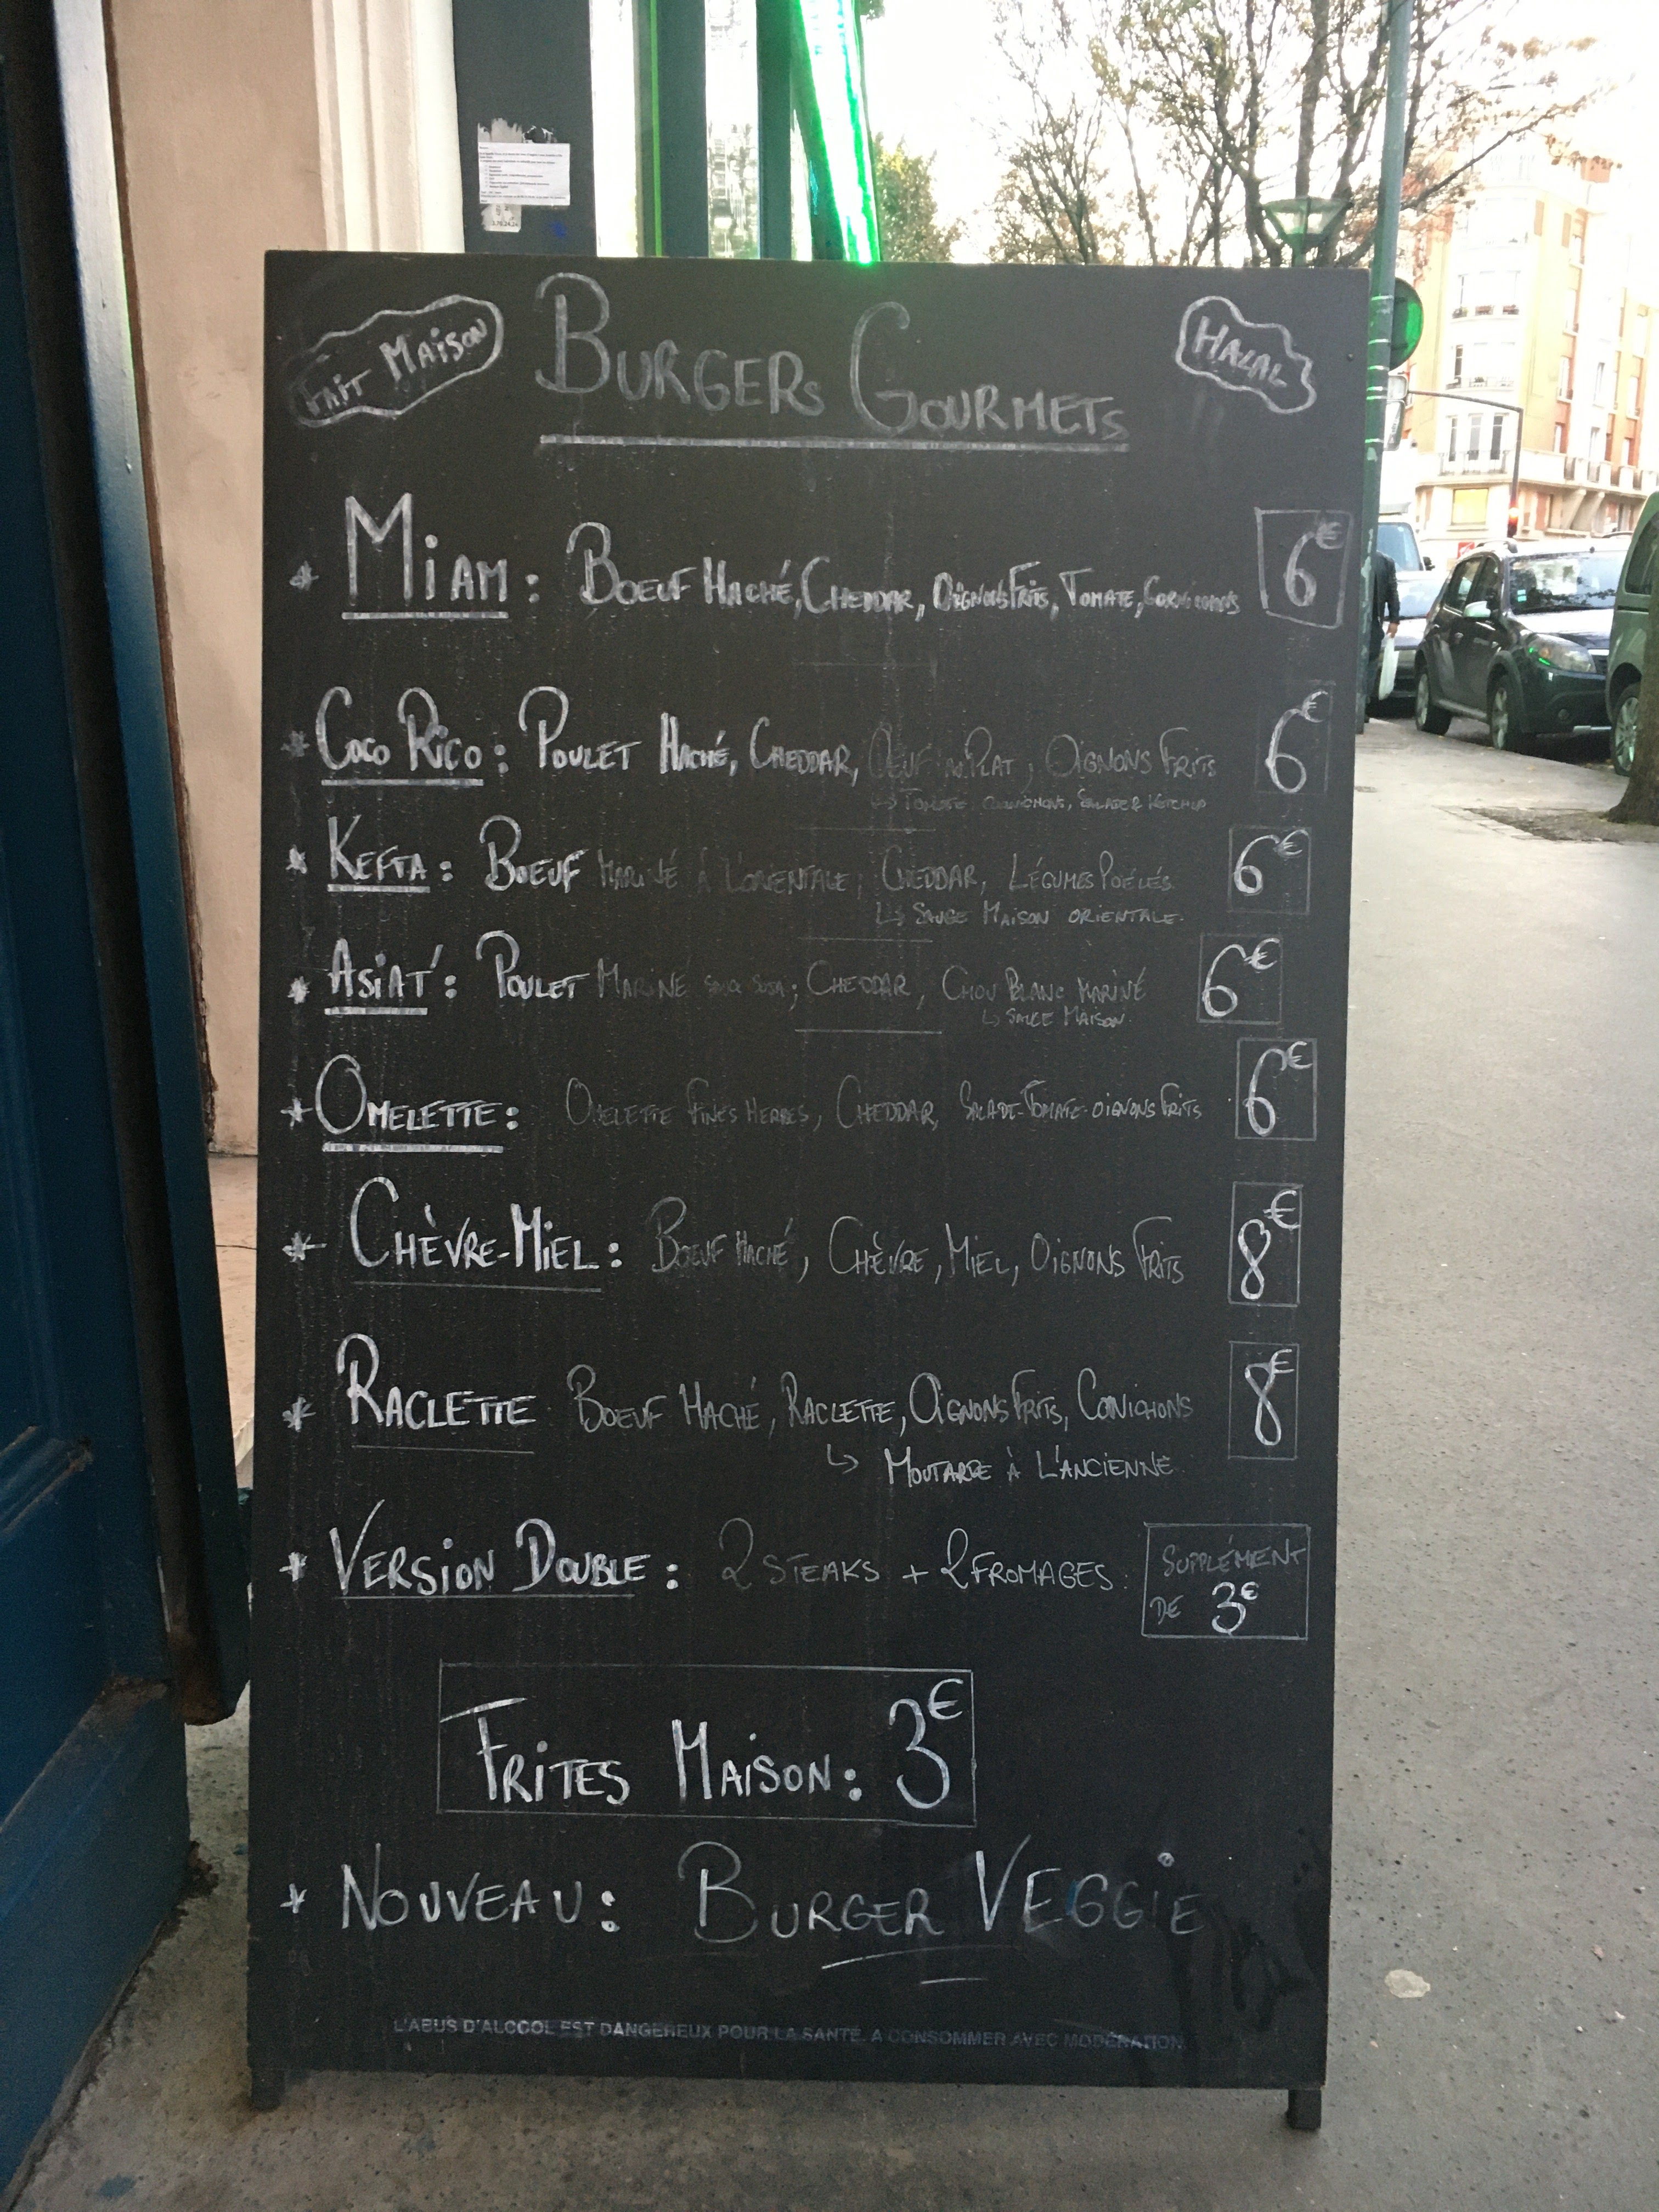 Fait Maison
Burgers Gourmets
Halal
* Miam : Boeuf Haché, Cheddar, Oignons Frits, Tomate, Cornichons 6€
* Coco Rico : Poulet Haché, Cheddar, Oeuf au Plat, Oignons Frits 6€
↳ Tomate, Cornichons, Salade & Ketchup
* Kefta : Boeuf Mariné à l'orientale, Cheddar, Légumes Poêlés 6€
↳ Sauce Maison orientale.
* Asiat' : Poulet Mariné sauce soja, Cheddar, Chou Blanc mariné 6€
↳ Sauce Maison.
* Omelette : Omelette Fines Herbes, Cheddar, Salade-Tomate-oignons Frits 6€
* Chèvre-Miel : Boeuf Haché, Chèvre, Miel, Oignons Frits 8€
* Raclette Boeuf Haché, Raclette, Oignons Frits, Conichons 8€
↳ Moutarde à l'ancienne
* Version Double : 2 steaks + 2 fromages. Supplément
de 3€
Frites Maison : 3€
* Nouveau : Burger Veggie
L'ABUS D'ALCOOL EST DANGEREUX POUR LA SANTÉ. A CONSOMMER AVEC MODÉRATION